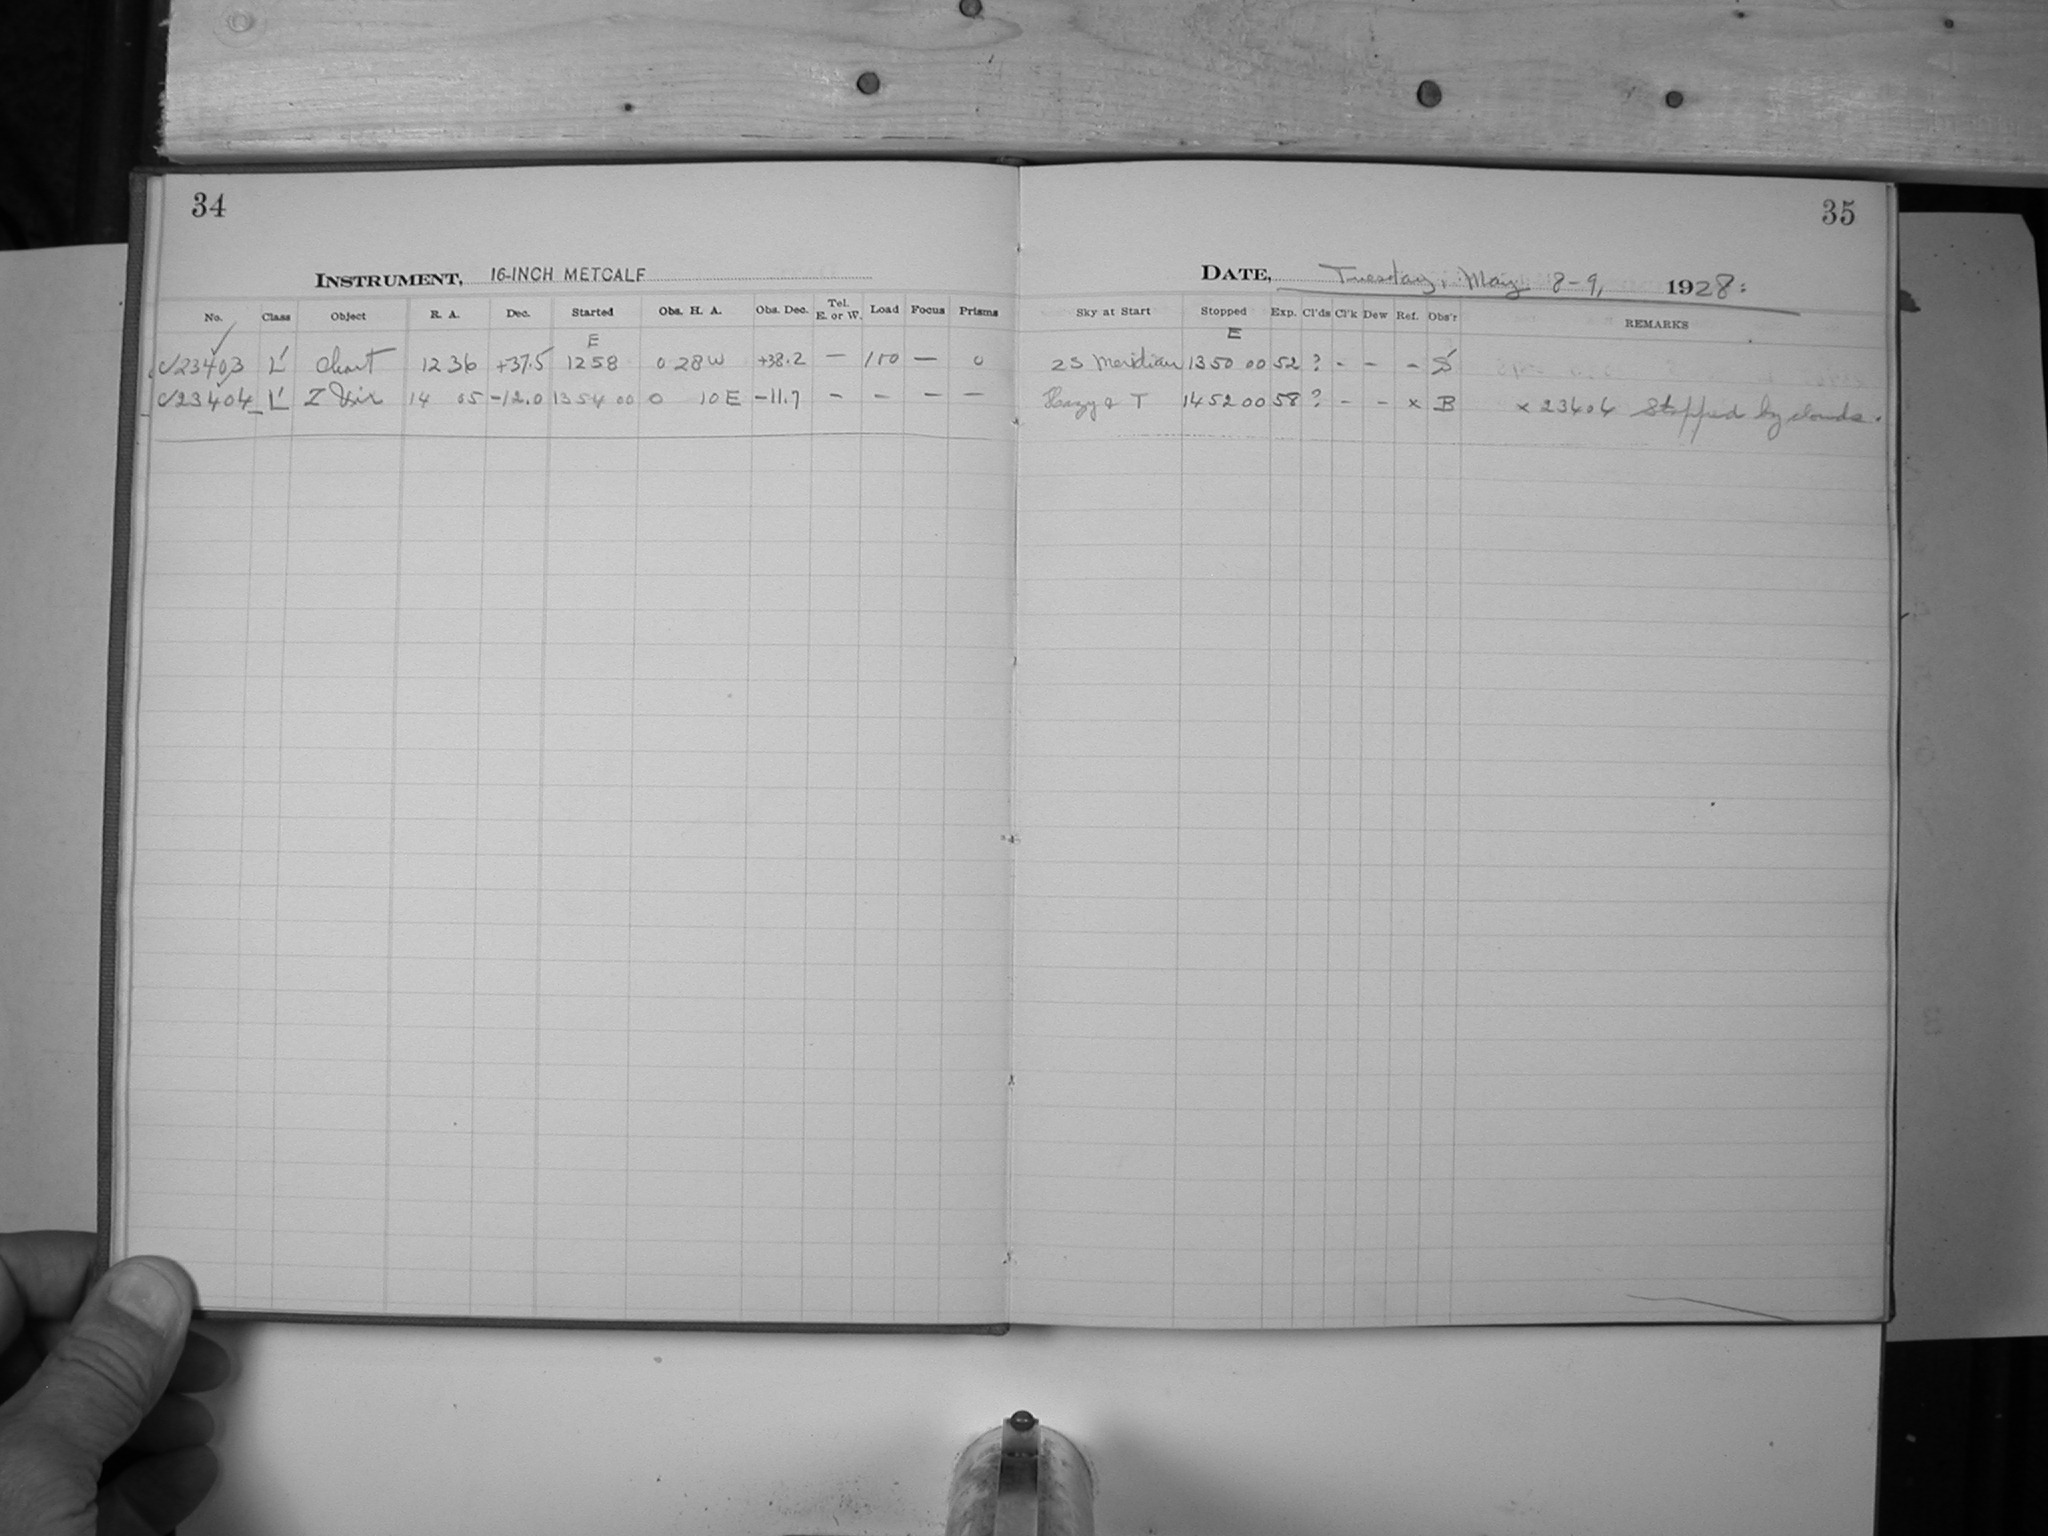 34
INSTRUMENT, 16-INCH METCALF
No. Class Object R. A. Dec. Started Obs. H. A. Obs. Dec. Tel. E. or W. Load Focus Prisms
E
23403 L Chart 12 36 +37.5 12 58 0 28 W +38.2 — 100 — 0
23404 L Z Vir 14 05 -12.0 13 54 00 0 10 E -11.7 - - - -
35
DATE, Tuesday, May 8-9, 1928.
Sky at Start Stopped Exp. Cl'ds Cl'k Dew Ref. Obs'r REMARKS
E
2S Meridian 13 50 00 52 ? - - - S
Hazy & T 14 52 00 58 ? - - x B x 23404 Stopped by clouds.